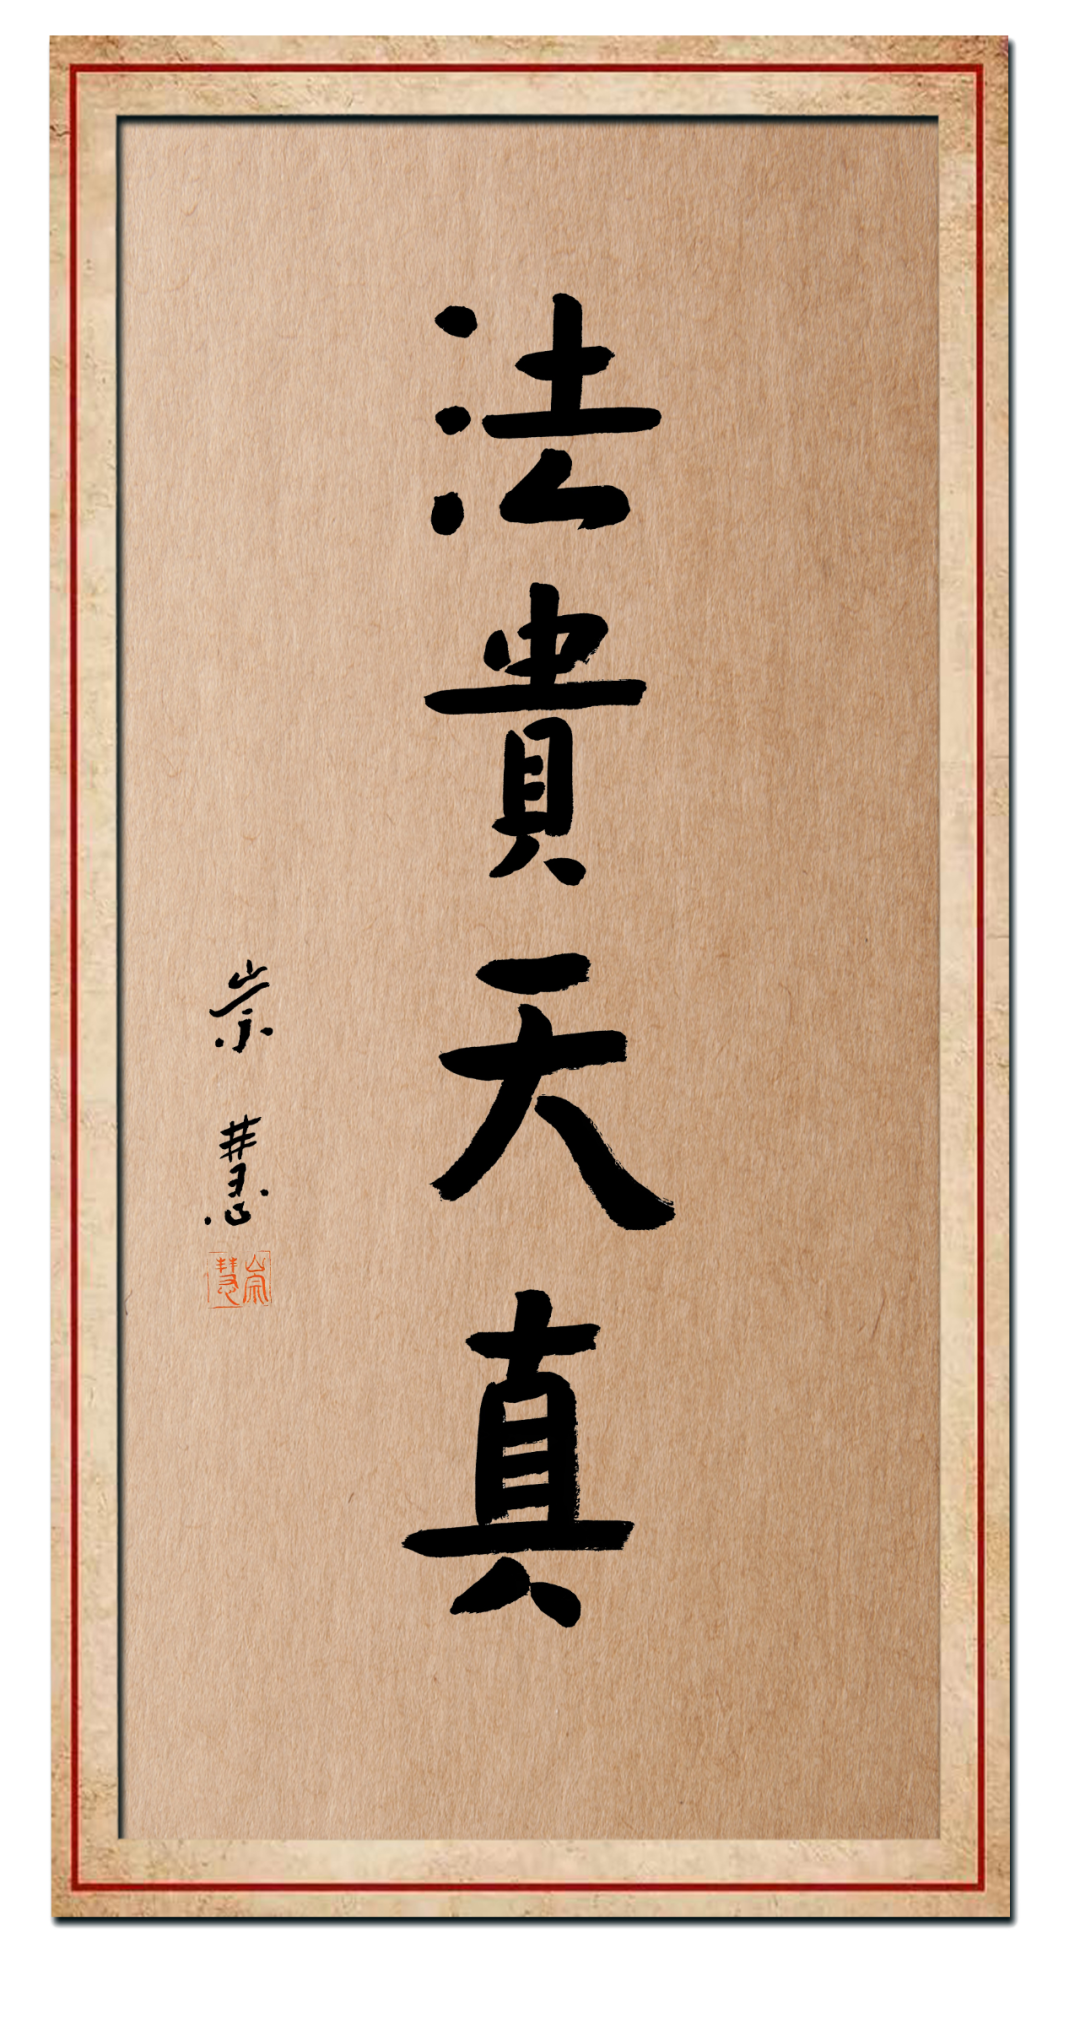 法貴天真
崇慧
崇慧